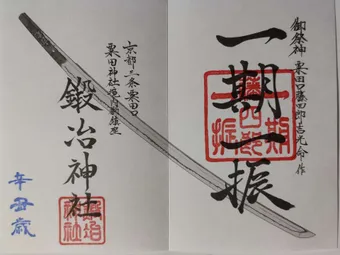 御祭神 粟田口藤四郎吉光命 作
一期一振
一期
藤四郎
一振
京都三条粟田口
粟田神社境内御鎮座
鍛冶神社
鍛冶
神社
辛丑歳